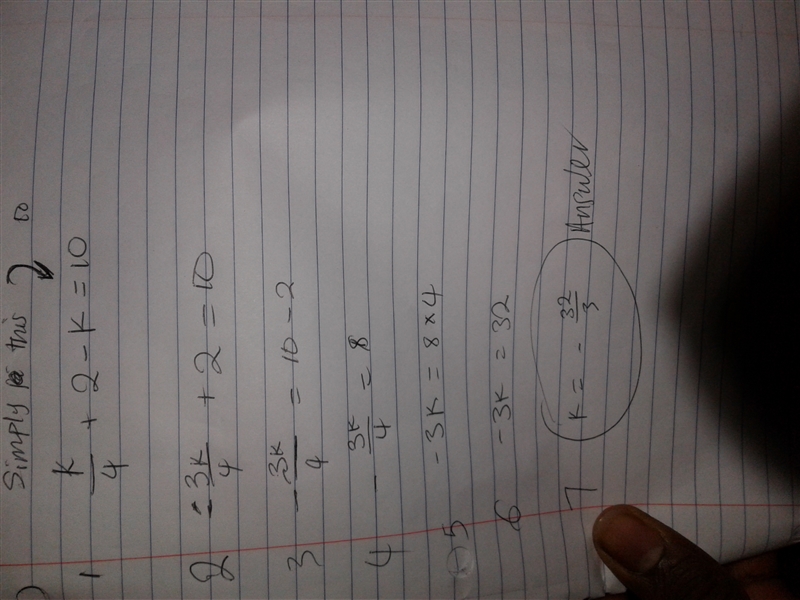 Simply this
1 k/4 + 2 - k = 10
2 - 3k/4 + 2 = 10
3 - 3k/4 = 10 - 2
4 - 3k/4 = 8
5 - 3k = 8 × 4
6 - 3k = 32
7 k = - 32/3 Answer